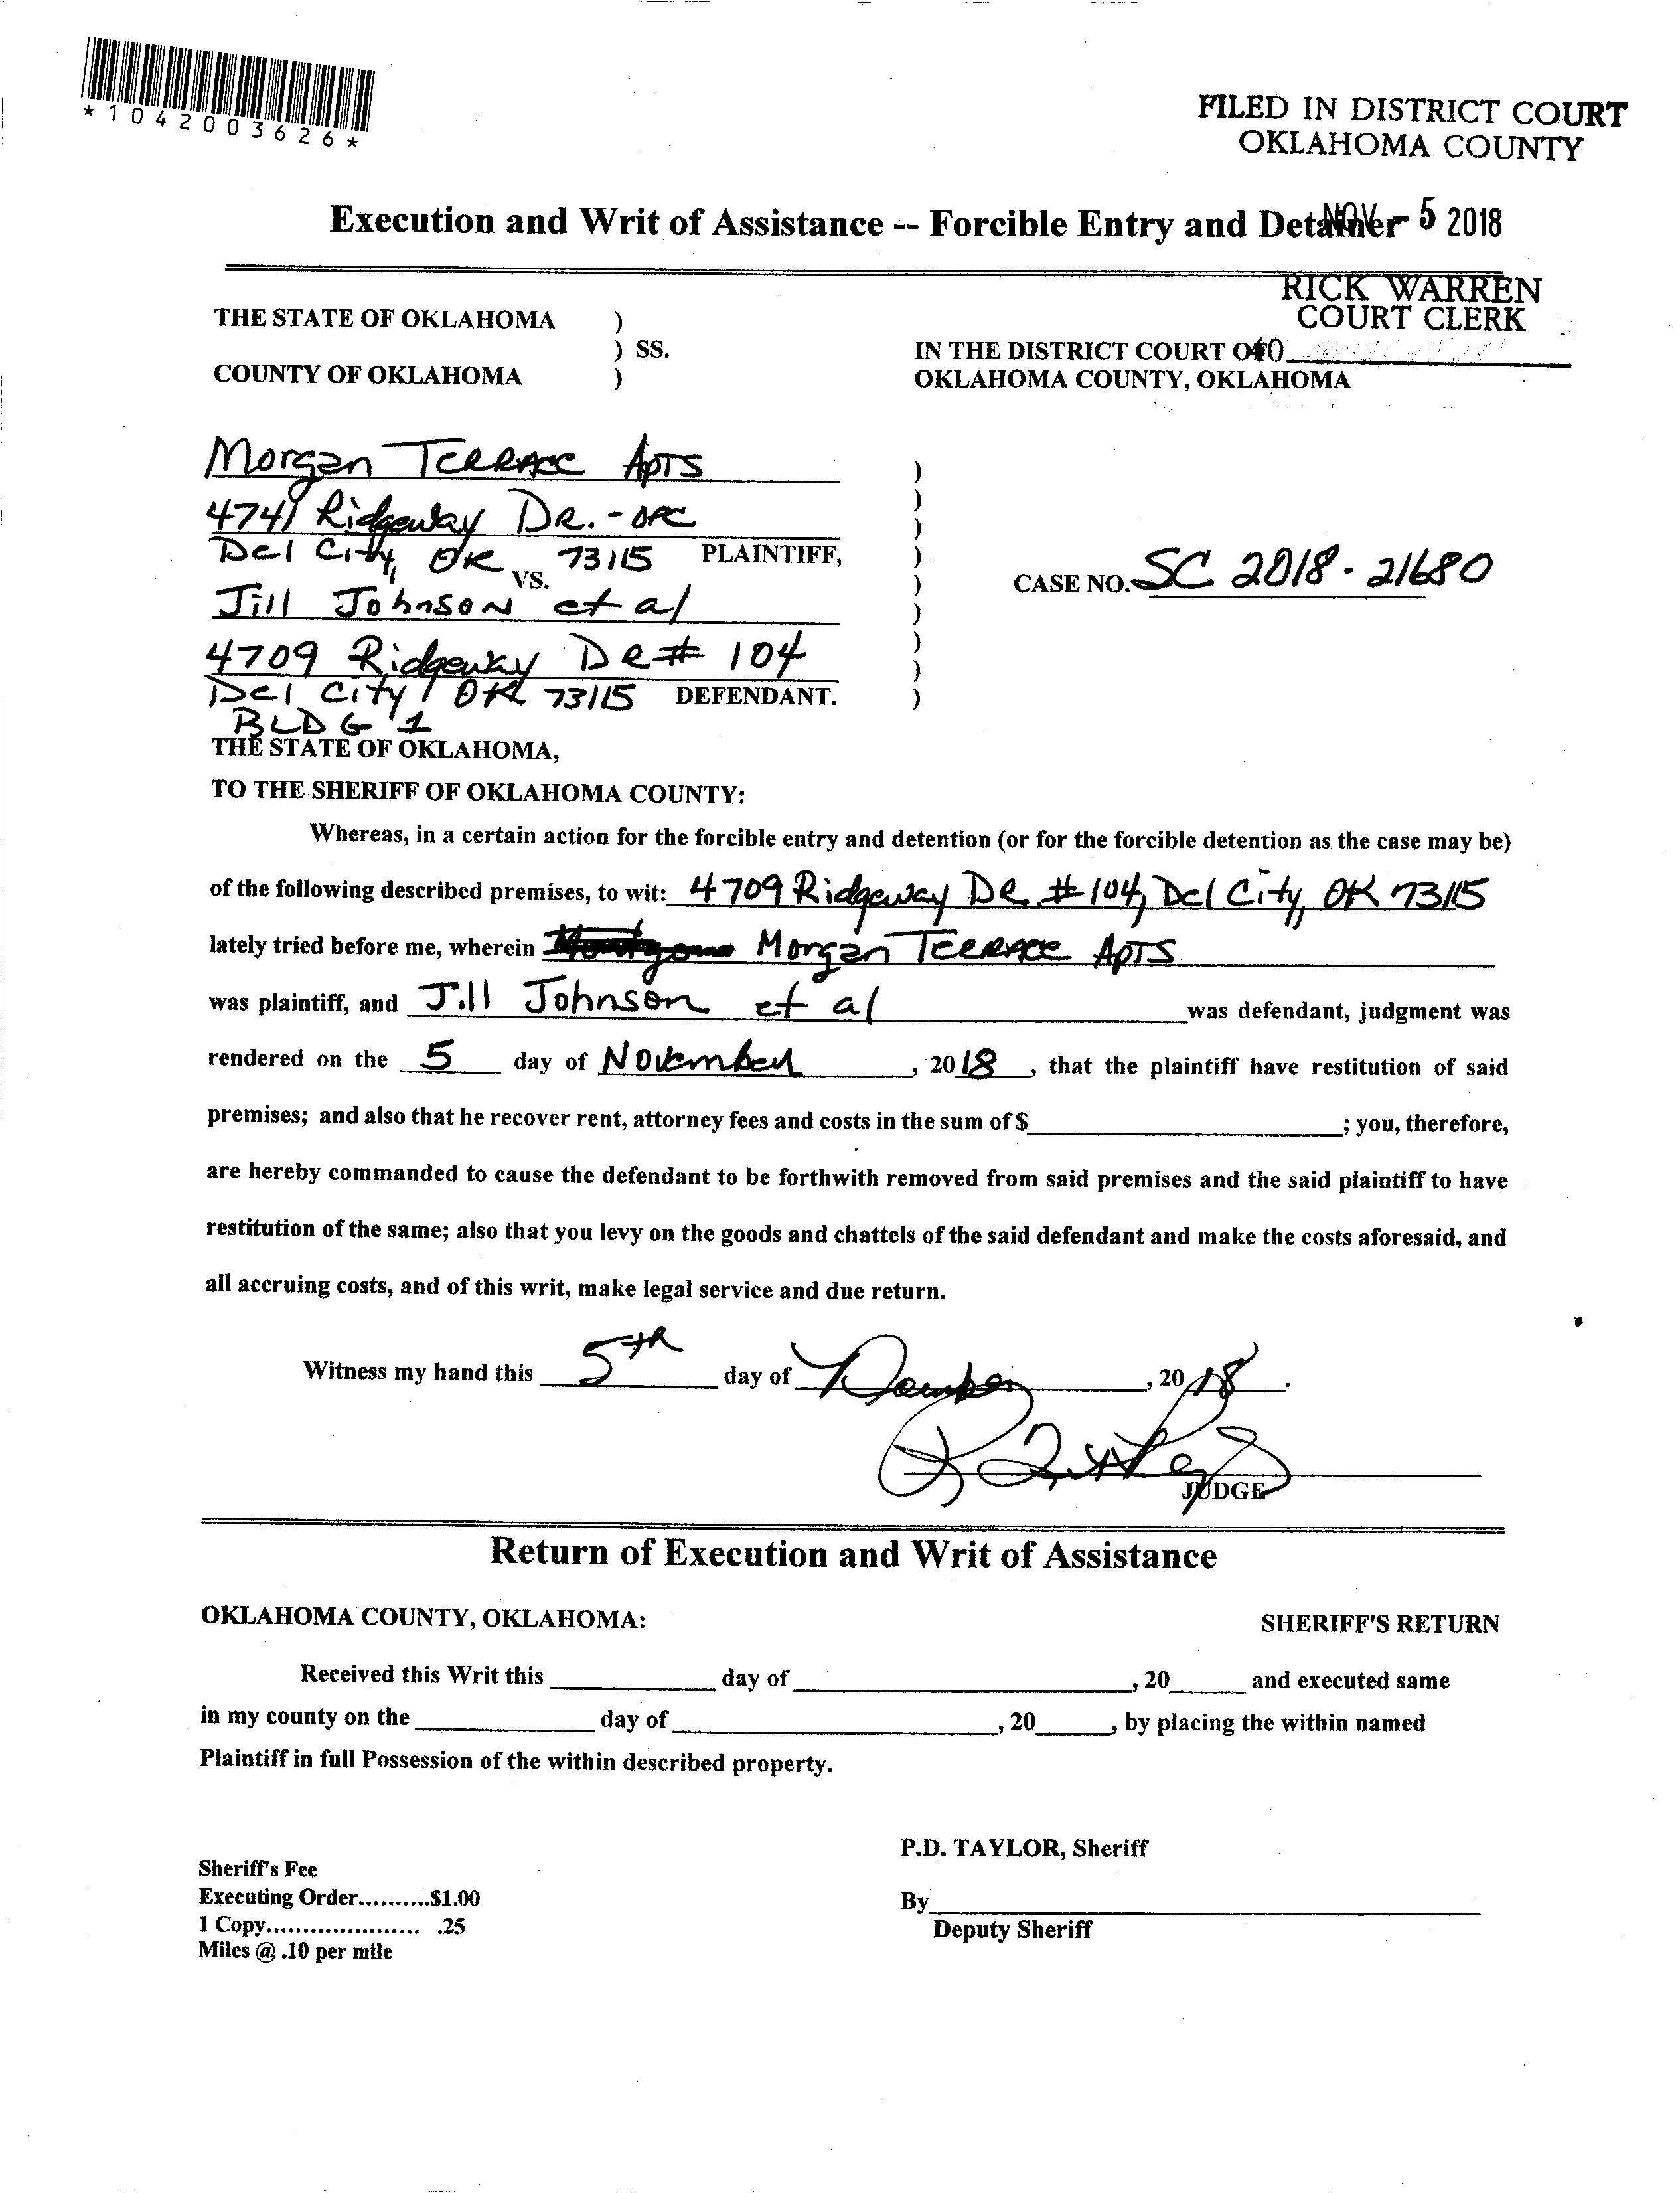 *1042003626*
FILED IN DISTRICT COURT
OKLAHOMA COUNTY
Execution and Writ of Assistance -- Forcible Entry and Detainer
NOV - 5 2018
RICK WARREN
COURT CLERK
THE STATE OF OKLAHOMA )
) SS.
COUNTY OF OKLAHOMA )
IN THE DISTRICT COURT OF
40
OKLAHOMA COUNTY, OKLAHOMA
Morgan Terrace Apts )
4741 Ridgeway Dr. - OFC )
Del City, OK 73115 PLAINTIFF, )
VS.
CASE NO. SC 2018-21680
Jill Johnson et al )
4709 Ridgeway Dr # 104 )
Del City, OK 73115 DEFENDANT. )
BLDG 1
THE STATE OF OKLAHOMA,
TO THE SHERIFF OF OKLAHOMA COUNTY:
Whereas, in a certain action for the forcible entry and detention (or for the forcible detention as the case may be)
of the following described premises, to wit: 4709 Ridgeway Dr. #104, Del City, OK 73115
lately tried before me, wherein Morgan Terrace Apts
was plaintiff, and Jill Johnson et al was defendant, judgment was
rendered on the 5 day of November, 2018, that the plaintiff have restitution of said
premises; and also that he recover rent, attorney fees and costs in the sum of $____; you, therefore,
are hereby commanded to cause the defendant to be forthwith removed from said premises and the said plaintiff to have
restitution of the same; also that you levy on the goods and chattels of the said defendant and make the costs aforesaid, and
all accruing costs, and of this writ, make legal service and due return.
Witness my hand this 5th day of ____, 2018.
JUDGE
Return of Execution and Writ of Assistance
OKLAHOMA COUNTY, OKLAHOMA: SHERIFF'S RETURN
Received this Writ this ____ day of ____, 20____ and executed same
in my county on the ____ day of ____, 20____, by placing the within named
Plaintiff in full Possession of the within described property.
P.D. TAYLOR, Sheriff
Sheriff's Fee
Executing Order..........$1.00
By____
1 Copy..................... .25
Deputy Sheriff
Miles @ .10 per mile